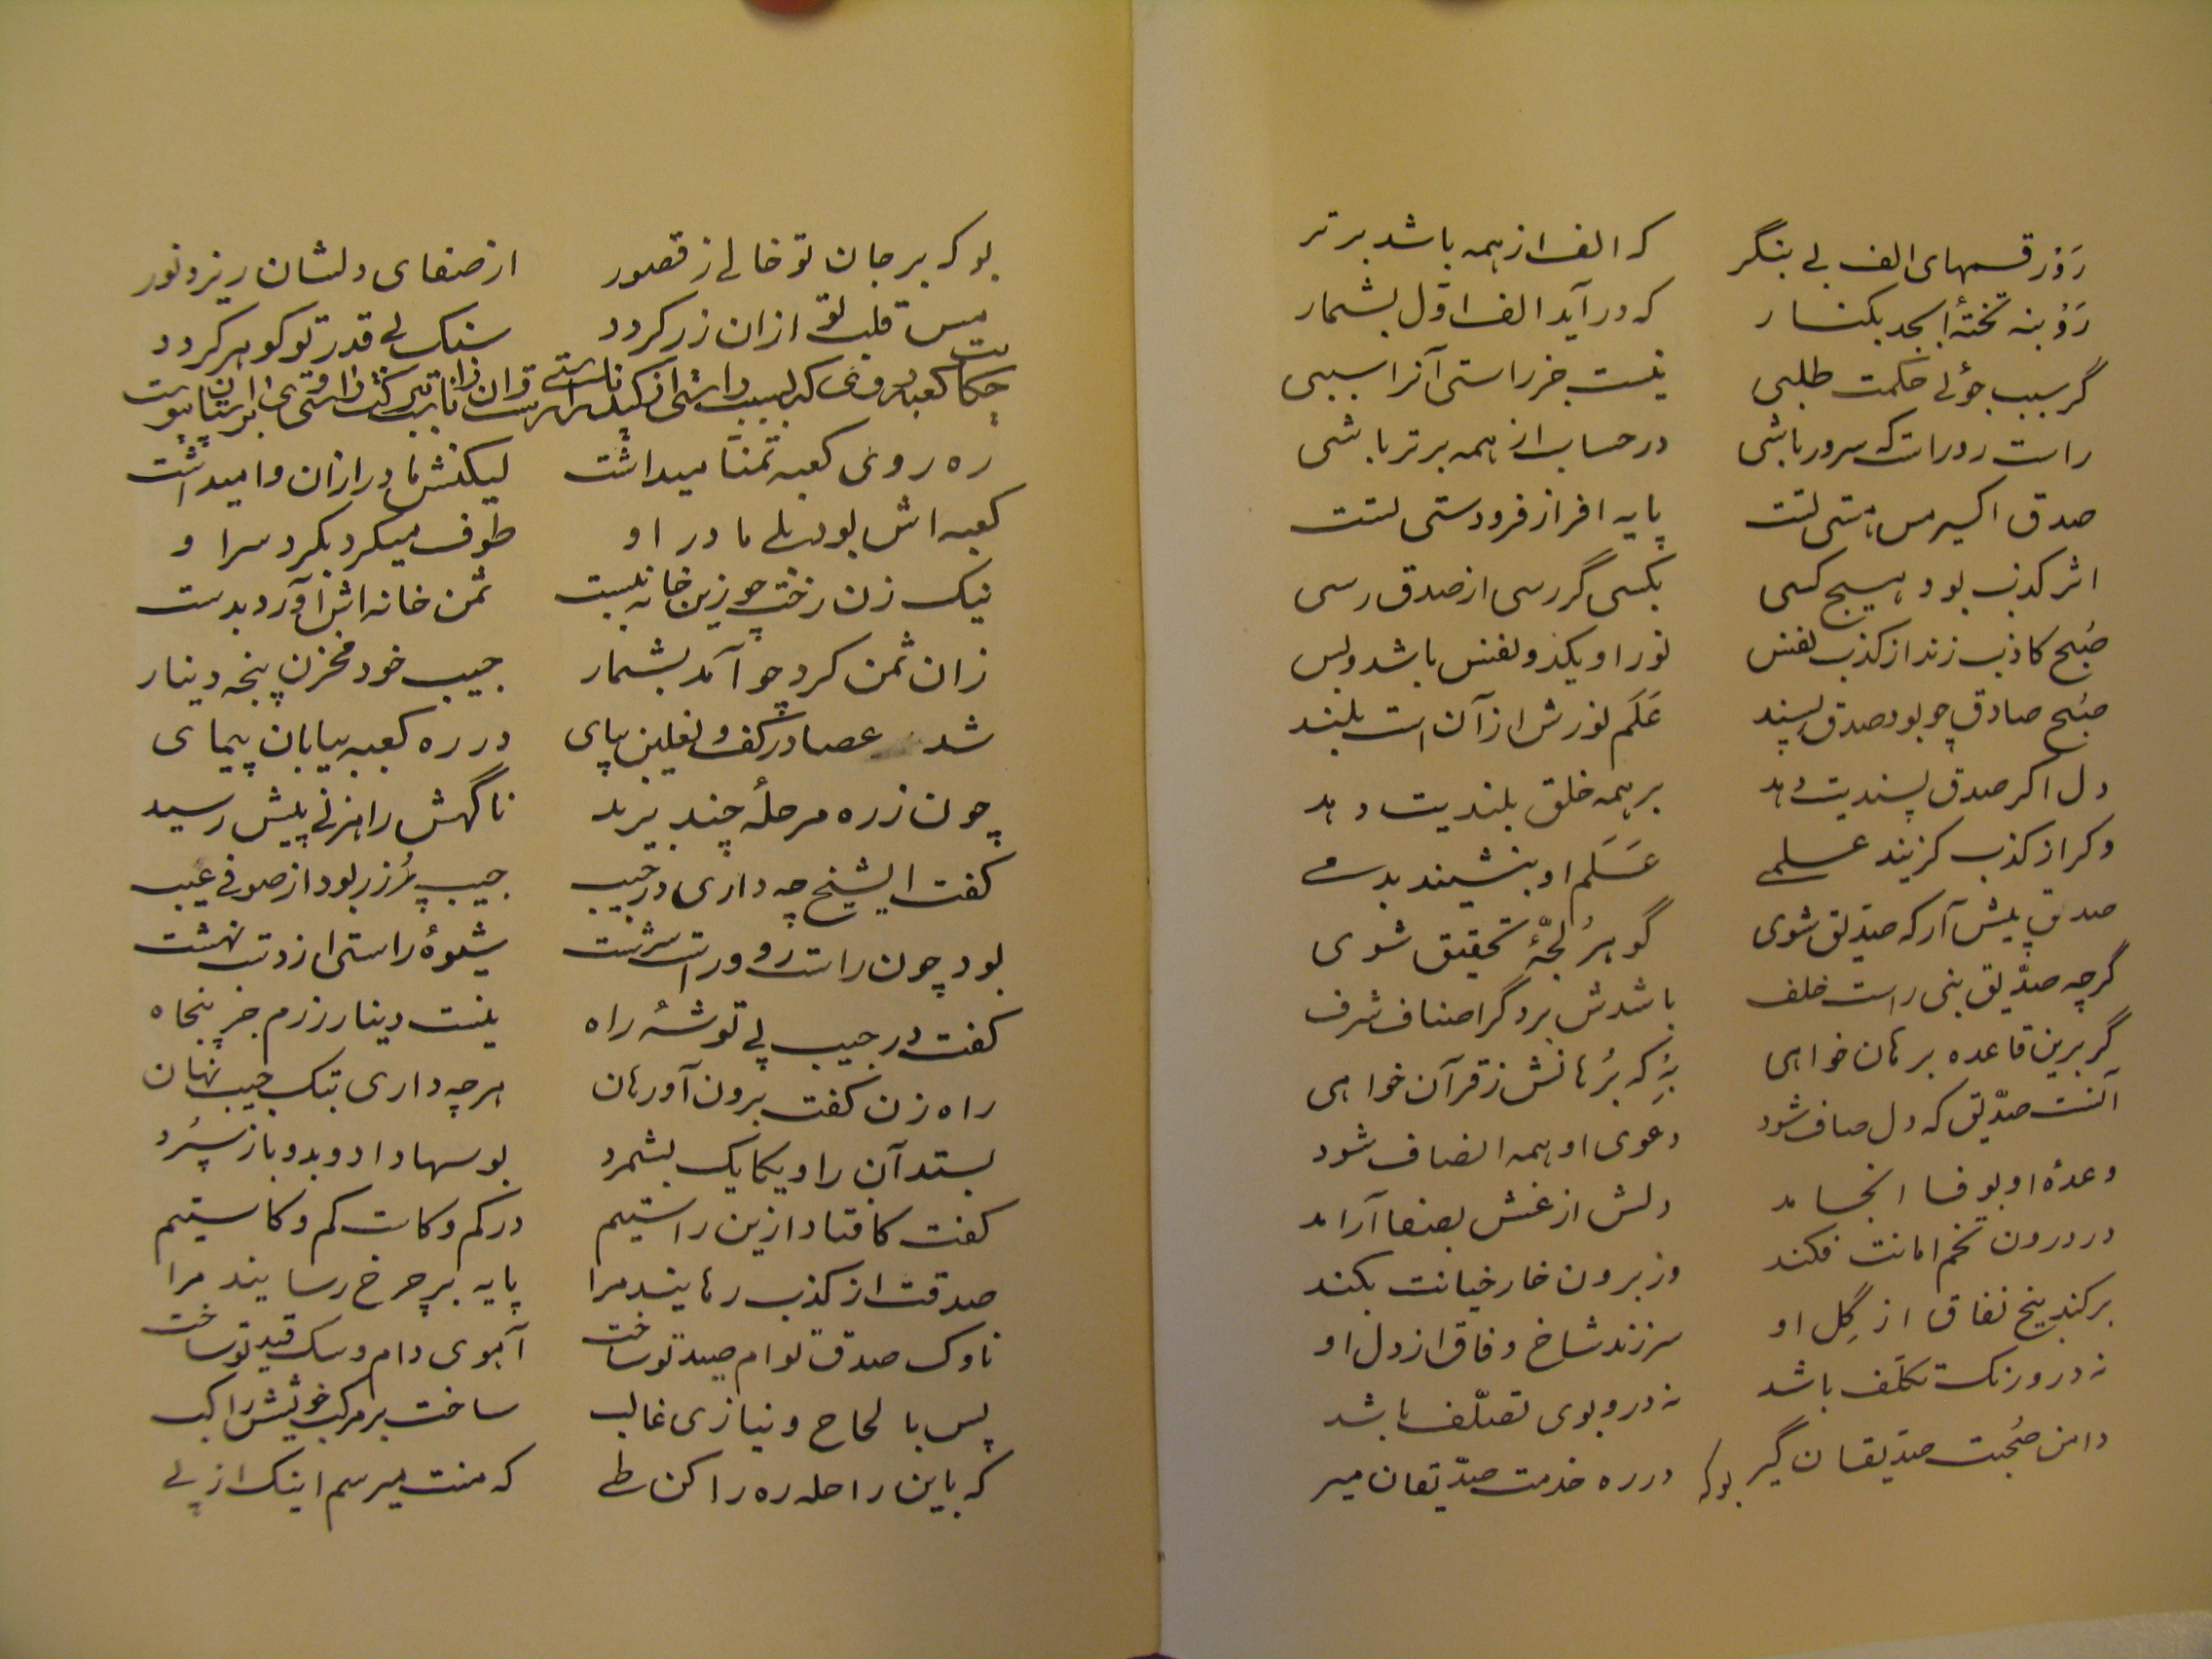 رَوْ رقمهای الف بی بنگر که الف از همه باشد برتر
رَوْ بنه تختهٔ ابجد بکنار که در آید الف اوّل بشمار
گر سبب جوئی حکمت طلبی نیست جز راستی آنرا سببی
راست رو راست که سرور باشی در حساب از همه برتر باشی
صدق اکسیر مس هستی تست پایه افراز فرودستی تست
اثر کذب بود هیچ کسی بکسی گر رسی از صدق رسی
صُبح کاذب زند از کذب نفس نور او یکدو نفس باشد و بس
صُبح صادق چو بود صدق پسند عَلَم نورش از آن است بلند
دل اگر صدق پسندیت دهد بر همه خلق بلندیت دهد
وگر از کذب گزیند علمی عَلَم او بنشیند بدمی
صدق پیش آر که صدّیق شوی گوهر لُجّهٔ تحقیق شوی
گرچه صدّیق نبی راست خلف باشدش بر دگر اصناف شرف
گر برین قاعده برهان خواهی بِه که بُرهانش ز قرآن خواهی
آنست صدّیق که دل صاف شود دعوی او همه انصاف شود
وعدهٔ او بوفا انجامد دلش از غش بصفا آرامد
در درون تخم امانت فکند وز برون خار خیانت بکند
بر کند بیخ نفاق از گِل او سر زند شاخ وفاق از دل او
نه درو رنگ تکلّف باشد نه درو بوی تصلّف باشد
دامن صُحبت صدّیقان گیر در ره خدمت صدّیقان میر
بوکه
بو که بر جان تو خالی ز قصور از صفای دلشان ریزد نور
مس قلب تو ازان زر گردد سنگ بی قدر تو گوهر گردد
حکایت کعبه روی که
ره روی کعبه تمنّا میداشت لیکنش مادر ازان وا میداشت
کعبه اش بود بلی مادر او طوف میکرد بگرد سر او
نیک زن رخت چو زین خانه ببست ثمن خانه اش آورد بدست
زان ثمن کرد چو آمد بشمار جیب خود مخزن پنجه دینار
شد عصا در کف و نعلین بپای در ره کعبه بیابان پیمای
چون ز ره مرحلهٔ چند برید ناگهش راهزنی پیش رسید
گفت ای شیخ چه داری در جیب جیب پُر زر بود از صوفی عیب
بود چون راست رو و راست سرشت شیوهٔ راستی از دست نهشت
گفت در جیب پی توشهٔ راه نیست دینار زرم جز پنجاه
راه زن گفت برون آور هان هرچه داری بتک جیب نهان
بستد آن را و یکایک بشمرد بوسها داد و بدو باز سپُرد
گفت کافتاد ازین راستیم در کم و کاست کم و کاستیم
صدقت از کذب رهانید مرا پایه بر چرخ رسانید مرا
ناوک صدق تو ام صید تو ساخت آهوی دام و سگ قید تو ساخت
پس با لحاح و نیازی غالب ساخت بر مرکب خویش راکب
که باین راحله ره را کن طی که منت میرسم اینک از پی